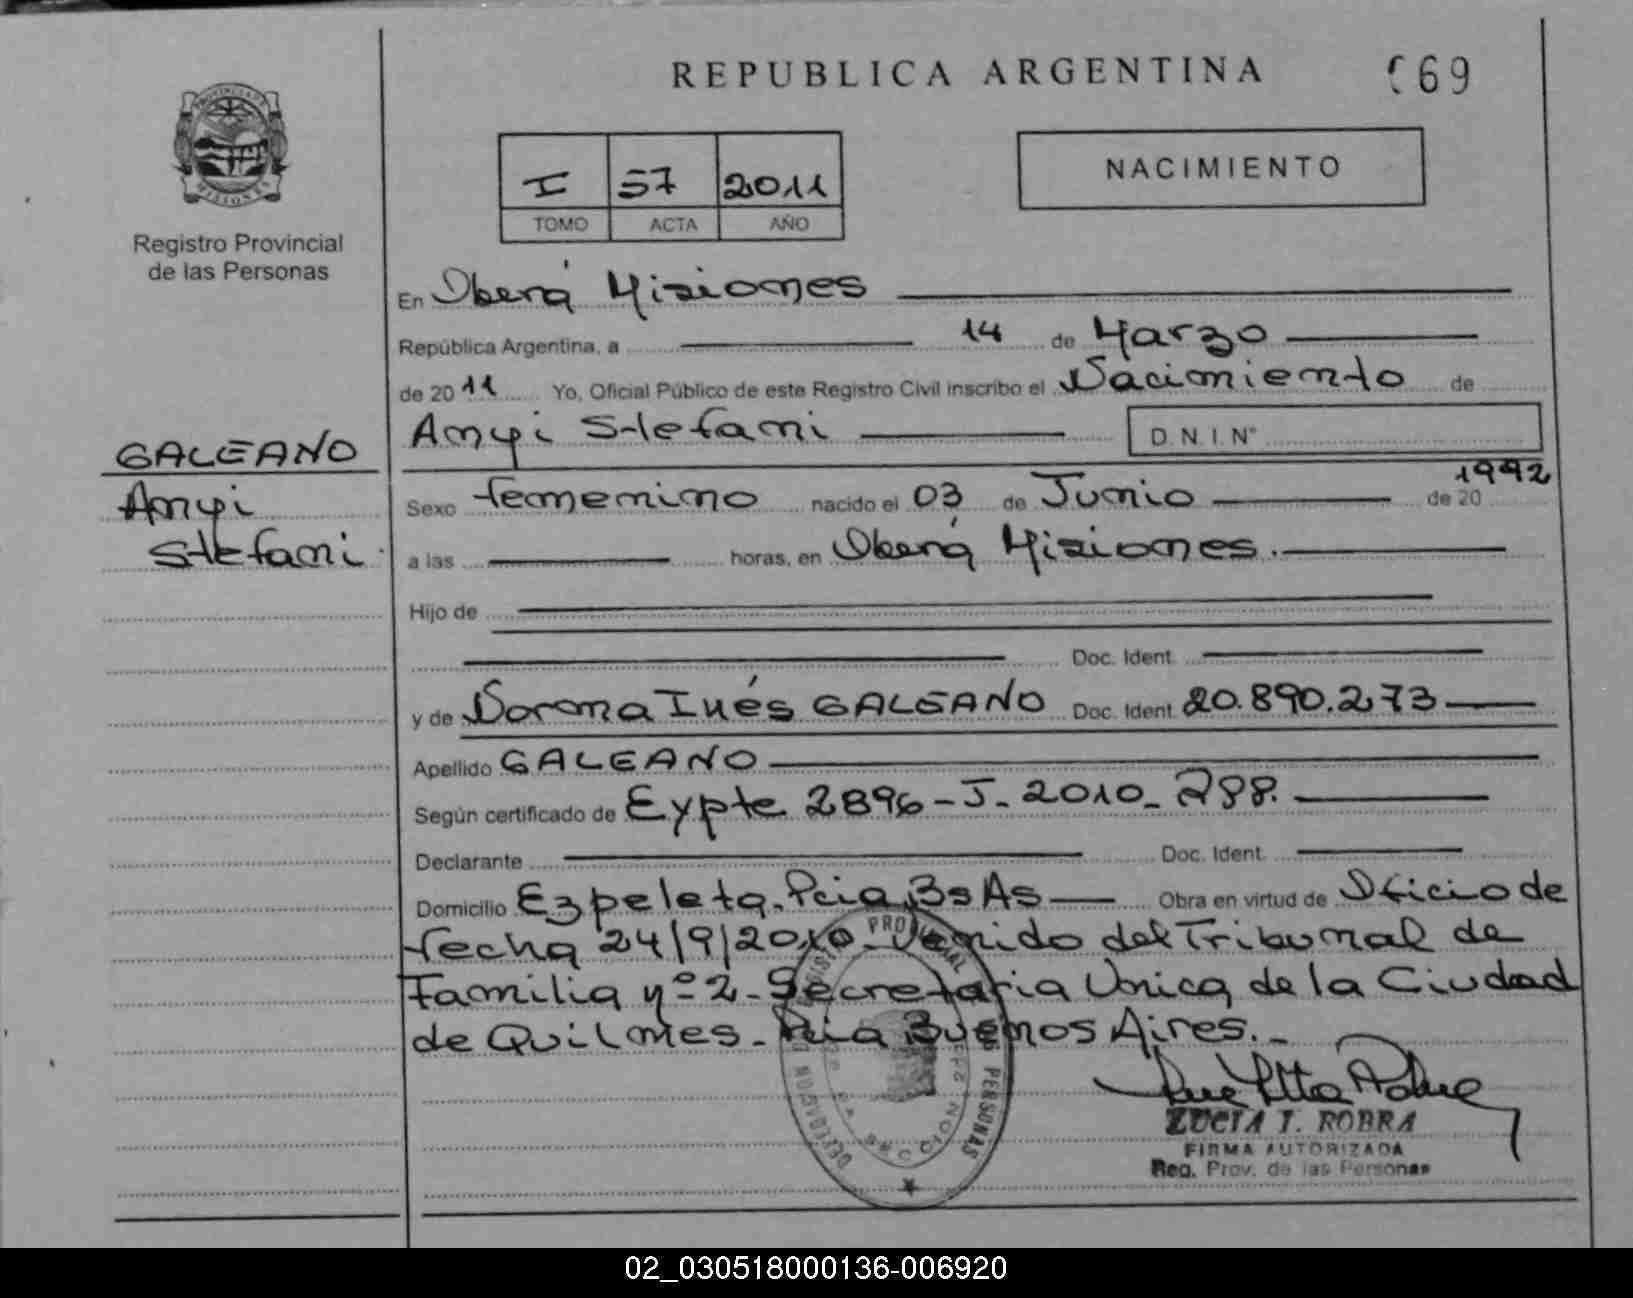 REPUBLICA ARGENTINA
69
I 57 2011
TOMO ACTA AÑO
NACIMIENTO
Registro Provincial
de las Personas
En Oberá Misiones
República Argentina, a 14 de Marzo
de 2011 Yo, Oficial Público de este Registro Civil inscribo el Nacimiento de
GALEANO
Anyi Stefani
Anyi Stefani D.N.I. Nº
Sexo femenino nacido el 03 de Junio de 20 1992
a las horas, en Oberá Misiones.
Hijo de
Doc. Ident.
y de Norma Inés GALEANO Doc. Ident. 20.890.273
Apellido GALEANO
Según certificado de Expte 2896-J-2010-288.
Declarante Doc. Ident.
Domicilio Ezpeleta. Pcia Bs As Obra en virtud de Oficio de
fecha 24/9/2010 Venido del Tribunal de
Familia nº 2 - Secretaria Unica de la Ciudad
de Quilmes. Pcia Buenos Aires.
LUCIA I. ROBRA
FIRMA AUTORIZADA
Reg. Prov. de las Personas
02_030518000136-006920